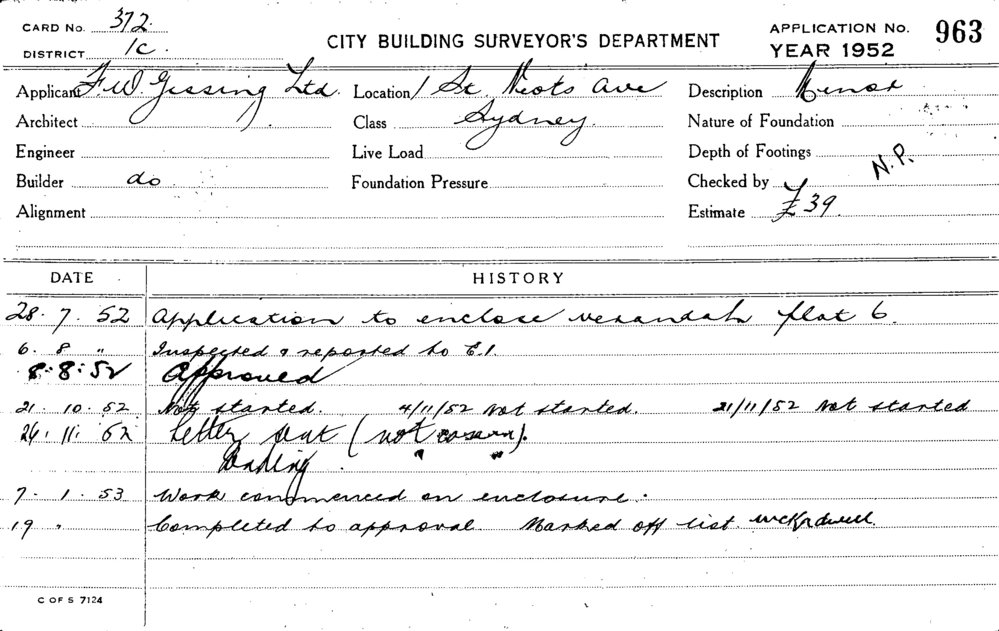 CARD No. 372. CITY BUILDING SURVEYOR'S DEPARTMENT APPLICATION No. 963
DISTRICT 1C. YEAR 1952
Applicant F.W. Gissing Ltd. Location 1 St. Neots Ave Description Minor
Architect Class Sydney. Nature of Foundation
Engineer Live Load Depth of Footings N.P.
Builder do Foundation Pressure Checked by
Alignment Estimate £39.
DATE HISTORY
28. 7. 52 Application to enclose verandah flat 6.
6. 8 " Inspected & reported to E.I.
8:8:52 Approved
21. 10. 52 Not started. 4/11/52 Not started. 21/11/52 Not started
26. 11. 52 Letter sent (not ).
7. 1. 53 Work commenced on enclosure.
19 " Completed to approval. Marked off list
C OF S 7124